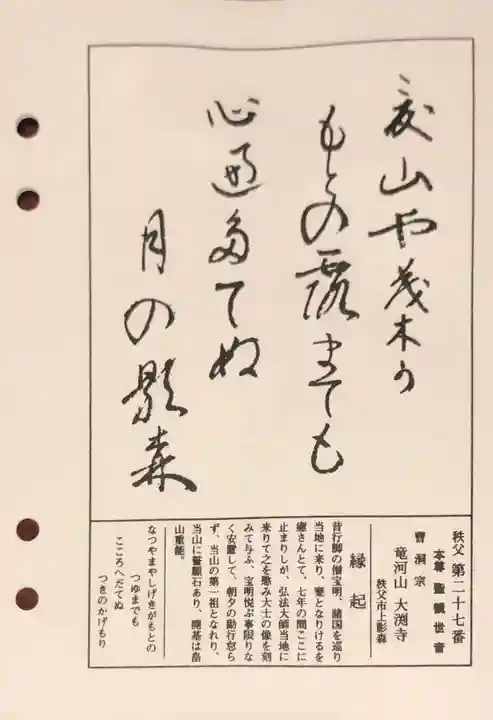 夏山や茂木可
もとの露まても
心遍多てぬ
月の影森
秩父 第二十七番
本尊 聖観世音
曹洞宗
竜河山 大渕寺
秩父市上影森
縁起
昔行脚の僧宝明、諸国を巡り
当地に来り、躄となりけるを
癒さんとて、七年の間ここに
止まりしが、弘法大師当地に
来りて之を愍み大士の像を刻
みて与ふ、宝明悦ぶ事限りな
く安置して、朝夕の勤行怠ら
ず、当山の第一祖となれり、
当山に誓願石あり、開基は畠
山重能。
なつやまやしげきがもとの
つゆまでも
こころへだてぬ
つきのかげもり